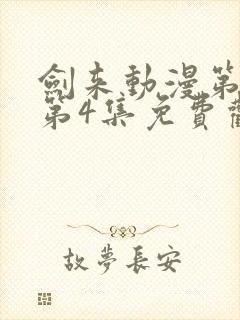 劍来動漫第
第4集免費
故夢長安